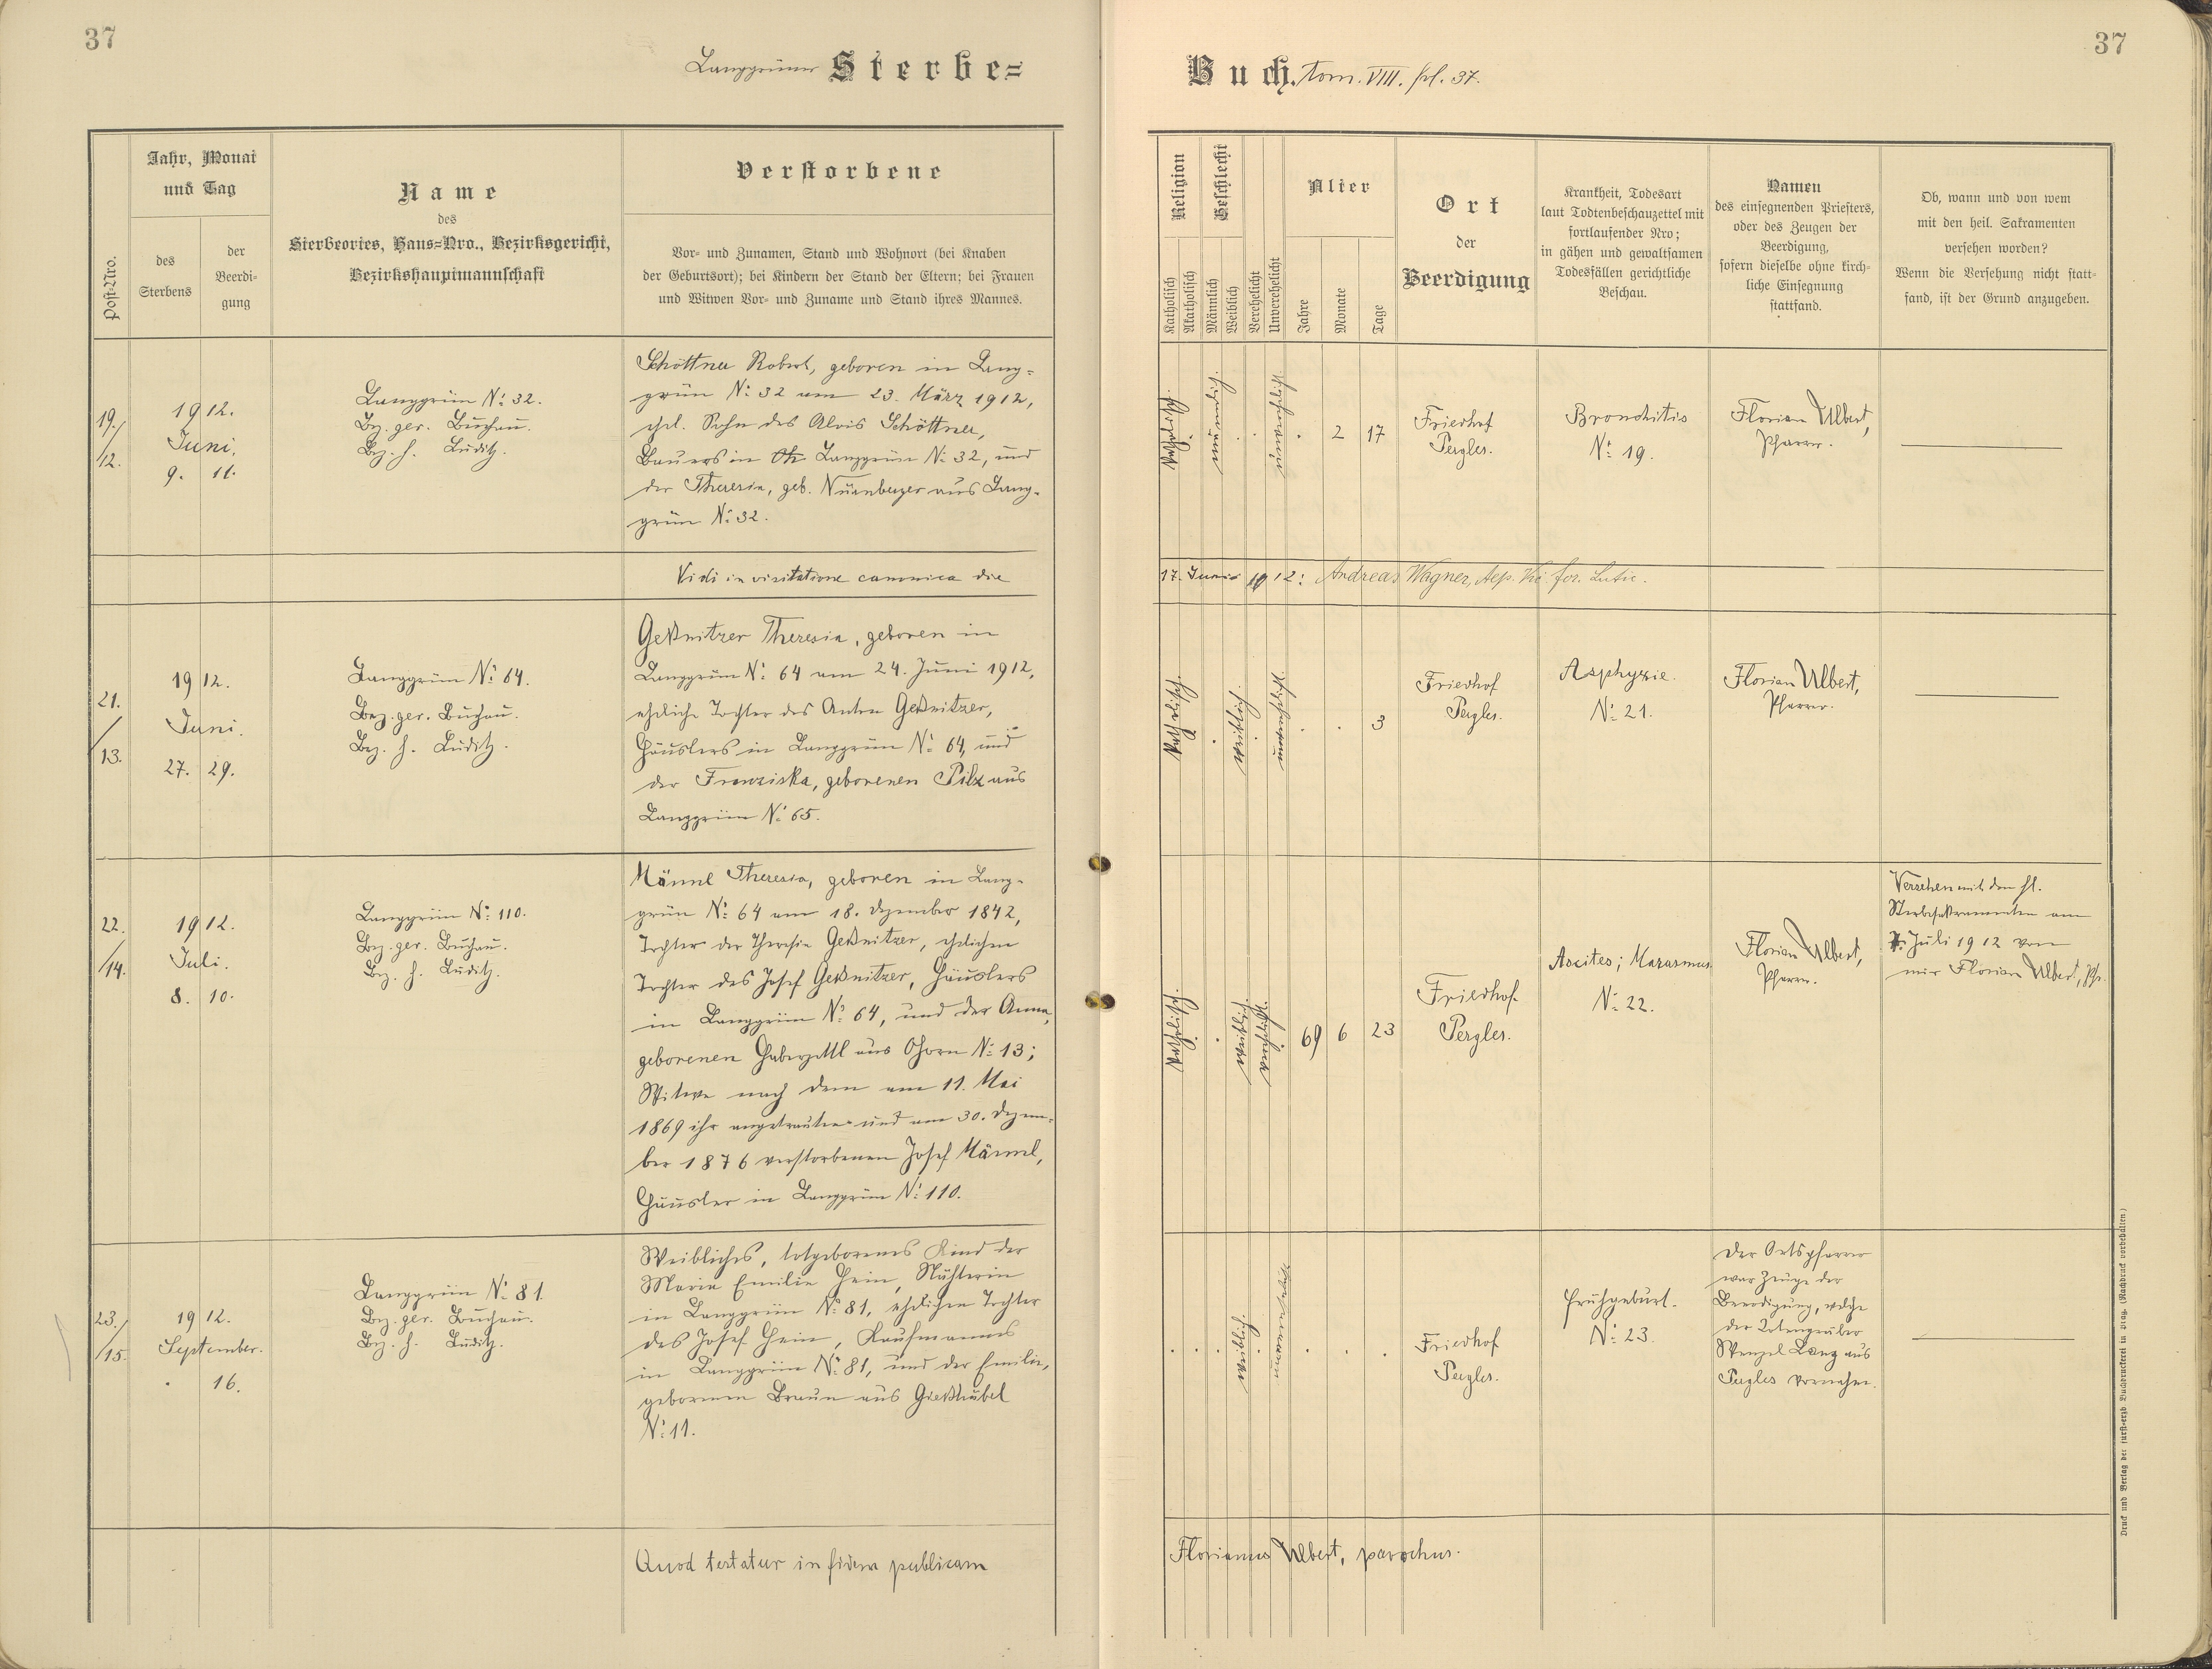 37
Langgrüner Sterbe=
Jahr, Monat
und Tag
Post-Nro.
des
Sterbens
der
Beerdi-
gung
Name
des
Sterbeortes, Haus=Nro., Bezirksgericht,
Bezirkshauptmannschaft
Verstorbene
Vor- und Zunamen, Stand und Wohnort (bei Knaben
der Geburtsort); bei Kindern der Stand der Eltern; bei Frauen
und Witwen Vor- und Zuname und Stand ihres Mannes.
19./
/12.
1912.
Juni.
9. 11.
Langgrün No 32.
Bez. ger. Buchau.
Bez. h. Luditz.
Schöttner Robert, geboren in Lang-
grün No 32 am 23. März 1912,
ehl. Sohn des Alois Schöttner,
Bauers in Langgrün No 32, und
der Theresia, geb. Nürnberger aus Lang-
grün No 32.
Vidi in visitatione canonica die
21.
/13.
1912.
Juni.
27. 29.
Langgrün No 64.
Bez. ger. Buchau.
Bez. h. Luditz.
Geßnitzer Theresia, geboren in
Langgrün No 64 am 24. Juni 1912,
eheliche Tochter des Anton Geßnitzer,
Häuslers in Langgrün No 64, und
der Franziska, geborenen Pilz aus
Langgrün No 65.
22.
/14.
1912.
Juli.
8. 10.
Langgrün No 110.
Bez. ger. Buchau.
Bez. h. Luditz.
Männl Theresia, geboren in Lang-
grün No 64 am 18. Dezember 1842,
Tochter der Theresia Geßnitzer, ehelichen
Tochter des Josef Geßnitzer, Häuslers
in Langgrün No 64, und der Anna,
geborenen Haberzettl aus Ohorn No 13;
Witwe nach dem am 11. Mai
1869 ihr angetrauten und am 30. Dezem-
ber 1876 verstorbenen Josef Männl,
Häusler in Langgrün No 110.
23./
/15.
1912.
September.
. 16.
Langgrün No 81.
Bez. ger. Buchau.
Bez. h. Luditz.
Weibliches, totgeborenes Kind der
Maria Emilie Hein, Nähterin
in Langgrün No 81, ehelichen Tochter
des Josef Hein, Kaufmannes
in Langgrün No 81, und der Emilie,
geborenen Braun aus Gießhübel
No 11.
Quod testatur in fidem publicam
37
Buch. tom. VIII. fol. 37.
Religion
Katholisch
Akatholisch
Geschlecht
Männlich
Weiblich
Verehelicht
Unverehelicht
Alter
Jahre
Monate
Tage
Ort
der
Beerdigung
Krankheit, Todesart
laut Todtenbeschauzettel mit
fortlaufender Nro;
in gähen und gewaltsamen
Todesfällen gerichtliche
Beschau.
Namen
des einsegnenden Priesters,
oder des Zeugen der
Beerdigung,
sofern dieselbe ohne kirch-
liche Einsegnung
stattfand.
Ob, wann und von wem
mit den heil. Sakramenten
versehen worden?
Wenn die Versehung nicht statt-
fand, ist der Grund anzugeben.
katholisch.
männlich.
unverehelicht.
. 2 17
Friedhof
Pergles.
Bronchitis
No 19.
Florian Ulbert,
Pfarrer.
17. Junii 1912: Andreas Wagner, Aep. Vic. for. Lutic.
katholisch.
.
weiblich.
unverehelicht.
. . 3
Friedhof
Pergles.
Asphyxie.
No 21.
Florian Ulbert,
Pfarrer.
katholisch.
.
weiblich.
verehelicht.
69 6 23
Friedhof
Pergles.
Ascites; Marasmus
No 22.
Florian Ulbert,
Pfarrer.
Versehen mit den hl.
Sterbesakramenten am
7. Juli 1912 von
mir Florian Ulbert, Pfr.
. . .
weiblich.
.
unverehelicht.
. . .
Friedhof
Pergles.
Frühgeburt.
No 23.
Der Ortspfarrer
war Zeuge der
Beerdigung, welche
der Totengräber
Wenzel Lang aus
Pergles vornahm.
Florianus Ulbert, parochus.
Druck und Verlag der fürst-erzb. Buchdruckerei in Prag. (Nachdruck vorbehalten.)